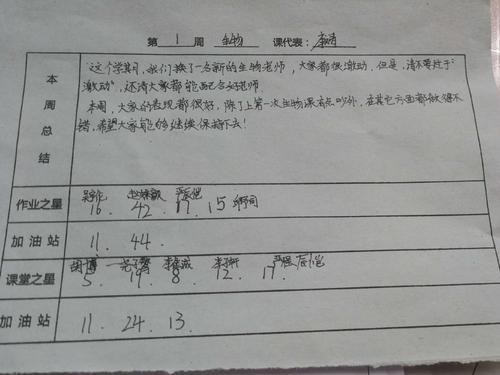 第 1 周 生物 课代表：
本周总结
这个学期，我们换了一名新的生物老师，大家都很激动。但是，请不要过于
"激动"，还请大家都能配合好老师。
本周，大家的表现都很好，除了上第一次生物课有点吵外，在其它方面都做得不
错，希望大家能够继续保持下去！
作业之星
16. 42. 17. 15
加油站 11. 44.
课堂之星
5. 19. 8. 12. 17.
加油站 11. 24. 13.